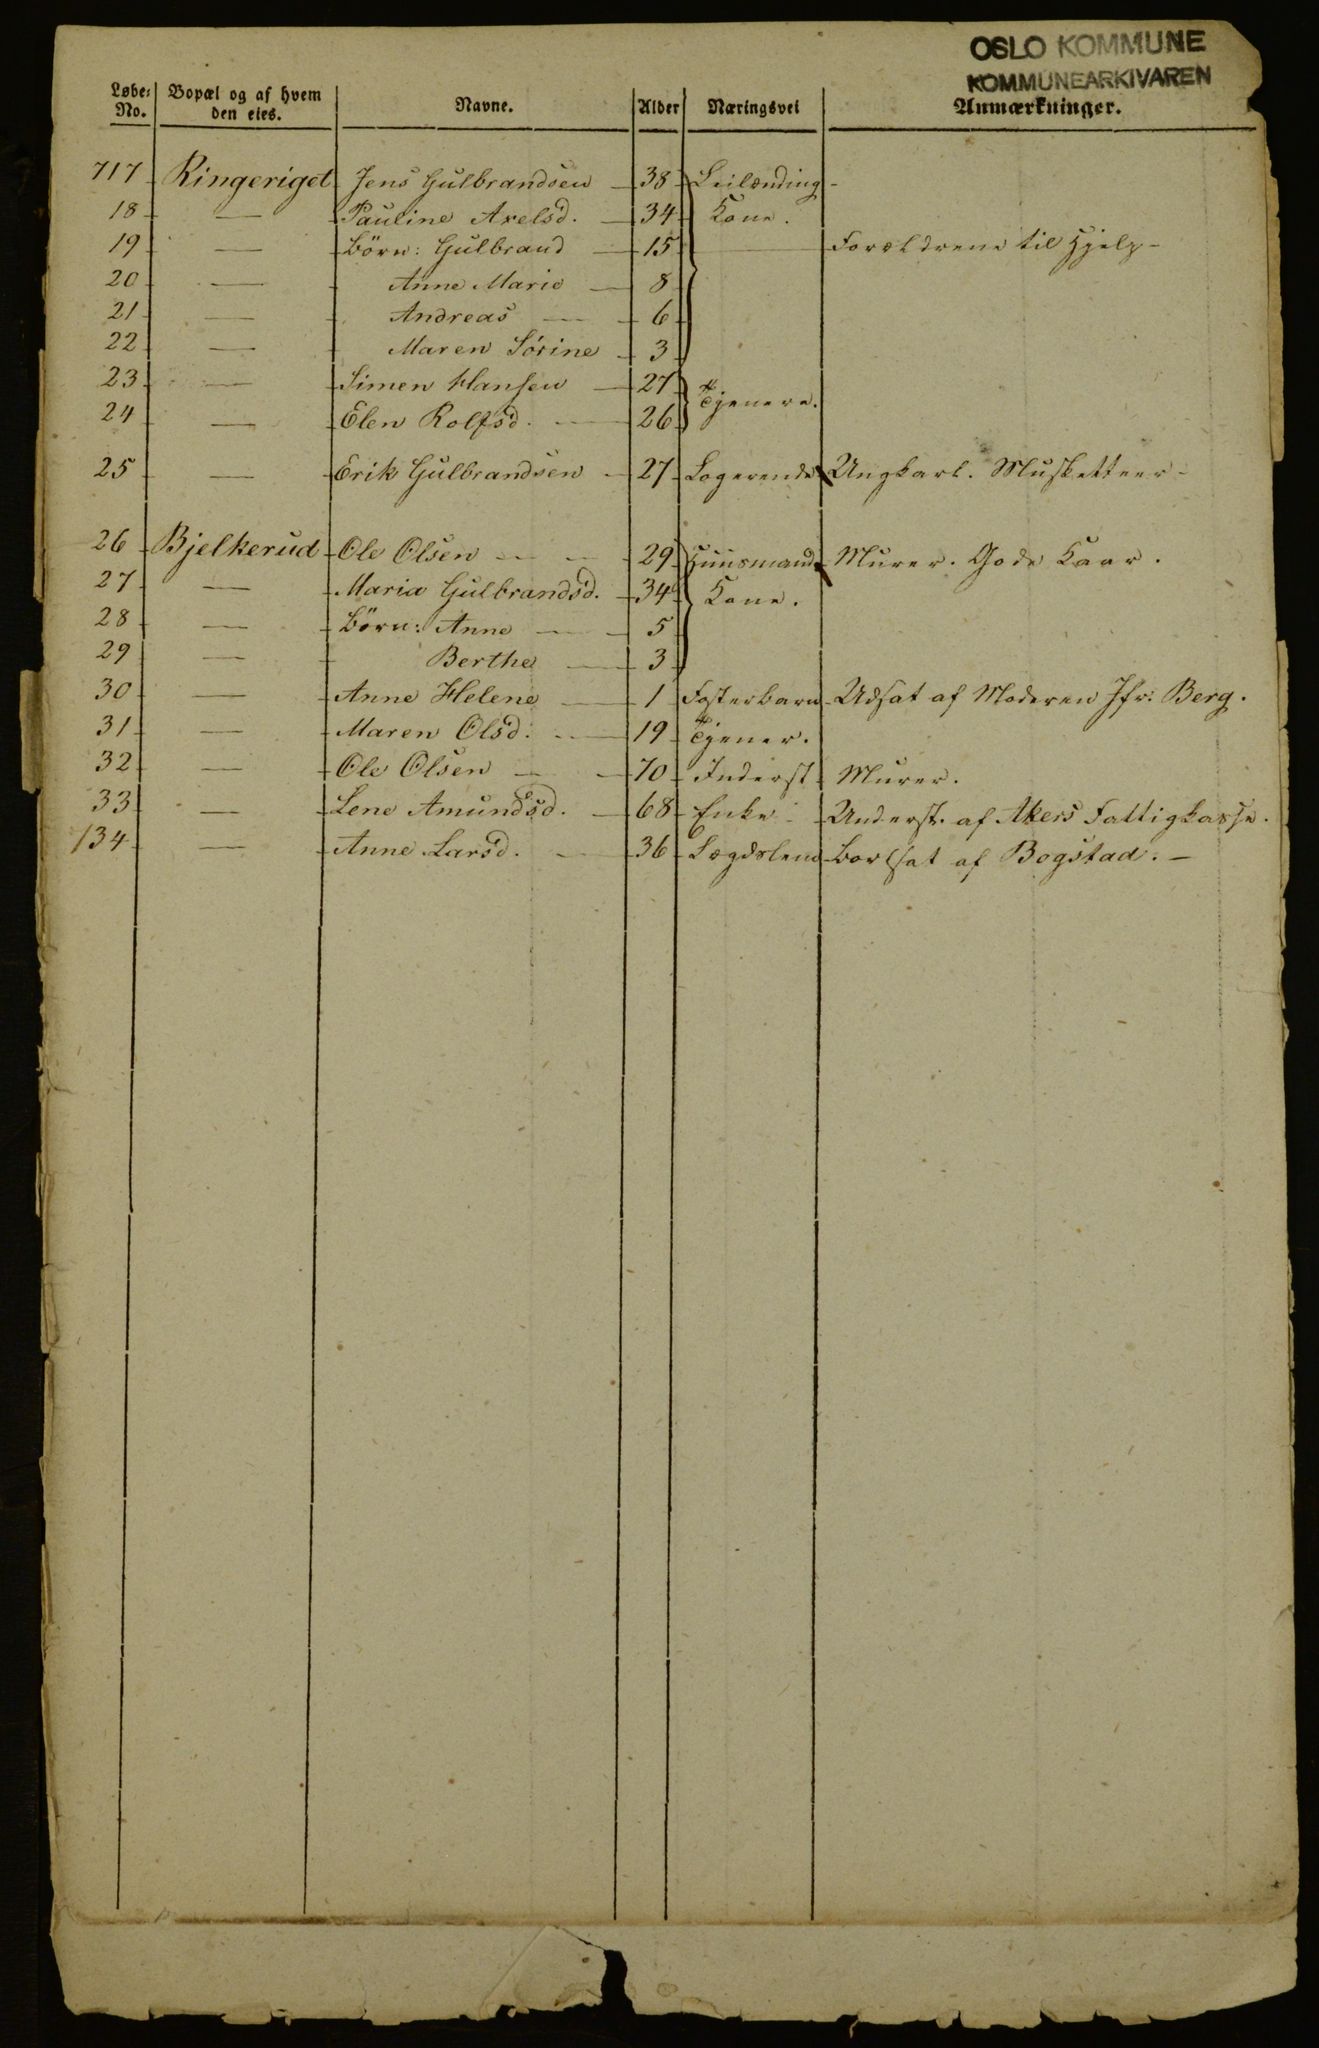 OSLO KOMMUNE
KOMMUNEARKIVAREN
Løbe-No. Bopæl og af hvem den eies. Navne. Alder Næringsvei Anmærkninger.
717 Ringeriget Jens Gulbrandsen 38 Leilænding
18 — Pauline Axelsd. 34 Kone.
19 — Börn: Gulbrand 15 — Forældrene til Hjelp
20 — Anne Marie 8
21 — Andreas 6
22 — Maren Sörine 3
23 — Simen Hansen 27 Tjenere.
24 — Elen Rolfsd. 26
25 — Erik Gulbrandsen 27 Logerende Ungkarl. Musketteer
26 Bjelkerud Ole Olsen 29 Huusmand Murer. Gode Kaar.
27 — Maria Gulbrandsd. 34 Kone.
28 — Börn: Anne 5
29 — Berthe 3
30 — Anne Helene 1 Fosterbarn Udsat af Moderen Jfr: Berg.
31 — Maren Olsd. 19 Tjener.
32 — Ole Olsen 70 Inderst Murer.
33 — Lene Amundsd. 68 Enke Underst. af Akers Fattigkasse.
134 — Anne Larsd. 36 Lægdslem Bortsat af Bogstad.